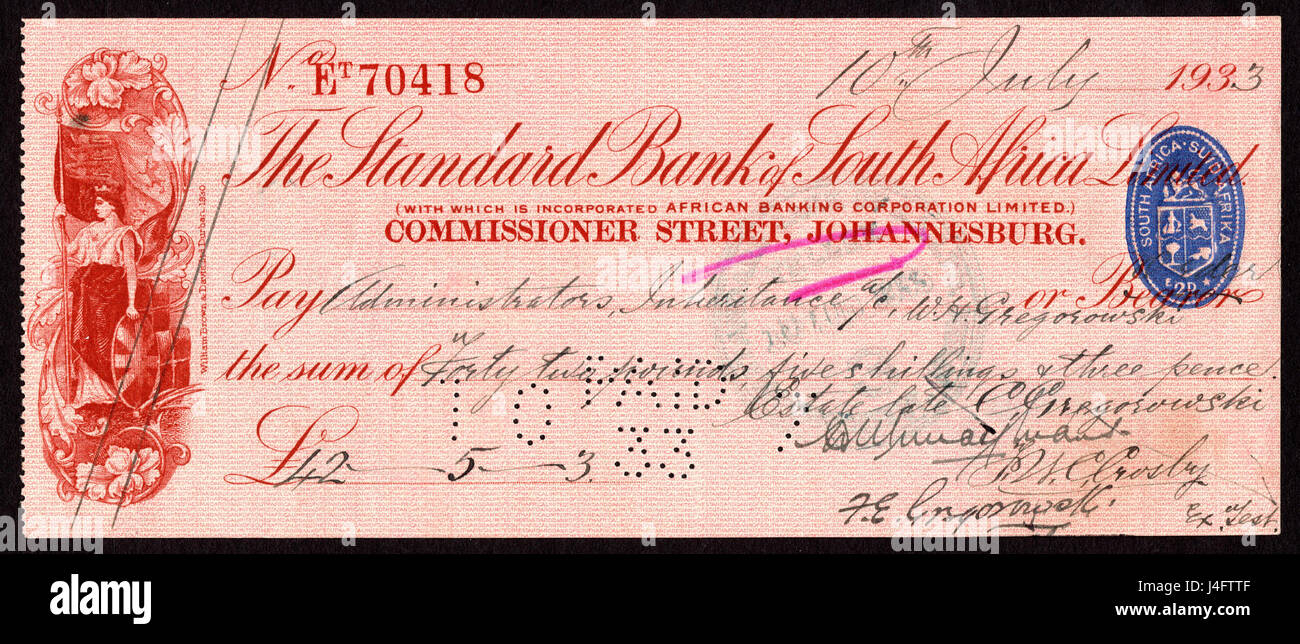 No. ET 70418
10th July 1933
The Standard Bank of South Africa Limited.
(WITH WHICH IS INCORPORATED AFRICAN BANKING CORPORATION LIMITED.)
COMMISSIONER STREET, JOHANNESBURG.
SOUTH AFRICA · SUID AFRIKA
2D
Pay Administrators, Inheritance a/c, W. H. Gregorowski or Bearer
Order
the sum of Forty two pounds, five shillings & three pence.
PAID
10
33
Estate late C Gregorowski
£42-5-3.
Crosby
F. E. Gregorowski.
Ex. Test.
William Brown & Davis Ltd Durban.
alamy
Image ID: J4FTTF
www.alamy.com